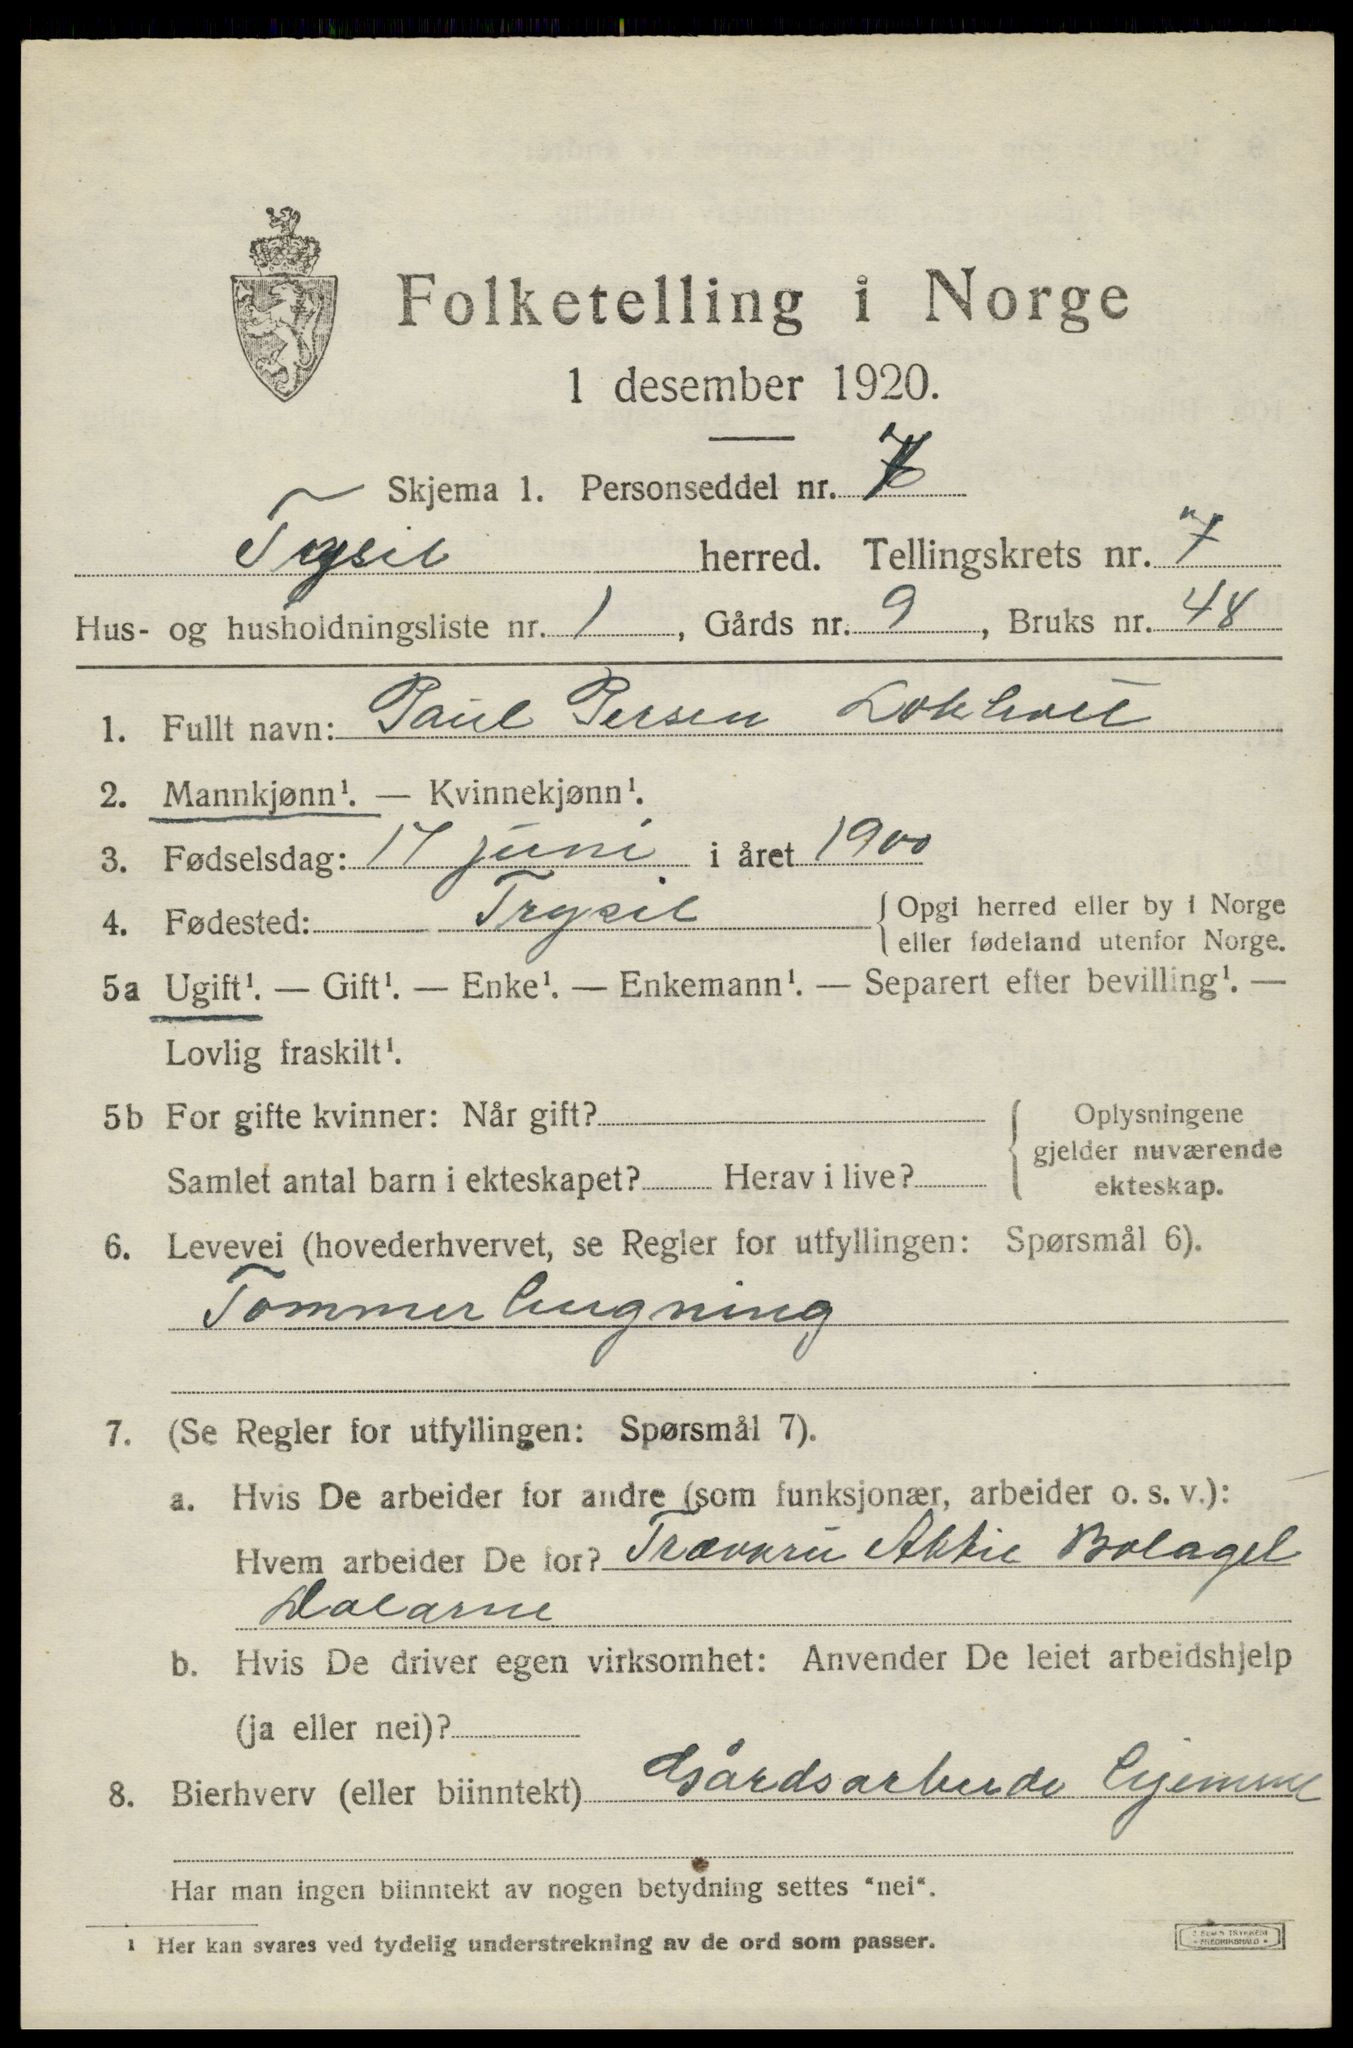 Folketelling i Norge
1 desember 1920.
Skjema 1. Personseddel nr. 7
Trysil herred. Tellingskrets nr. 7
Hus- og husholdningsliste nr. 1, Gårds nr. 9, Bruks nr. 48
1. Fullt navn: Paul Persen
2. Mannkjønn¹. — Kvinnekjønn¹.
3. Fødselsdag: 17 juni i året 1900
4. Fødested: Trysil { Opgi herred eller by i Norge
eller fødeland utenfor Norge.
5a Ugift¹. — Gift¹. — Enke¹. — Enkemann¹. — Separert efter bevilling¹. —
Lovlig fraskilt¹.
5b For gifte kvinner: Når gift? { Oplysningene
gjelder nuværende
Samlet antal barn i ekteskapet? Herav i live? ekteskap.
6. Levevei (hovederhvervet, se Regler for utfyllingen: Spørsmål 6).
Tømmerhugning
7. (Se Regler for utfyllingen: Spørsmål 7).
a. Hvis De arbeider for andre (som funksjonær, arbeider o. s. v.):
Hvem arbeider De for? Aktie Bolaget
Dalarne
b. Hvis De driver egen virksomhet: Anvender De leiet arbeidshjelp
(ja eller nei)?
8. Bierhverv (eller biinntekt) Gårdsarbeide hjemme
Har man ingen biinntekt av nogen betydning settes "nei".
1 Her kan svares ved tydelig understrekning av de ord som passer.